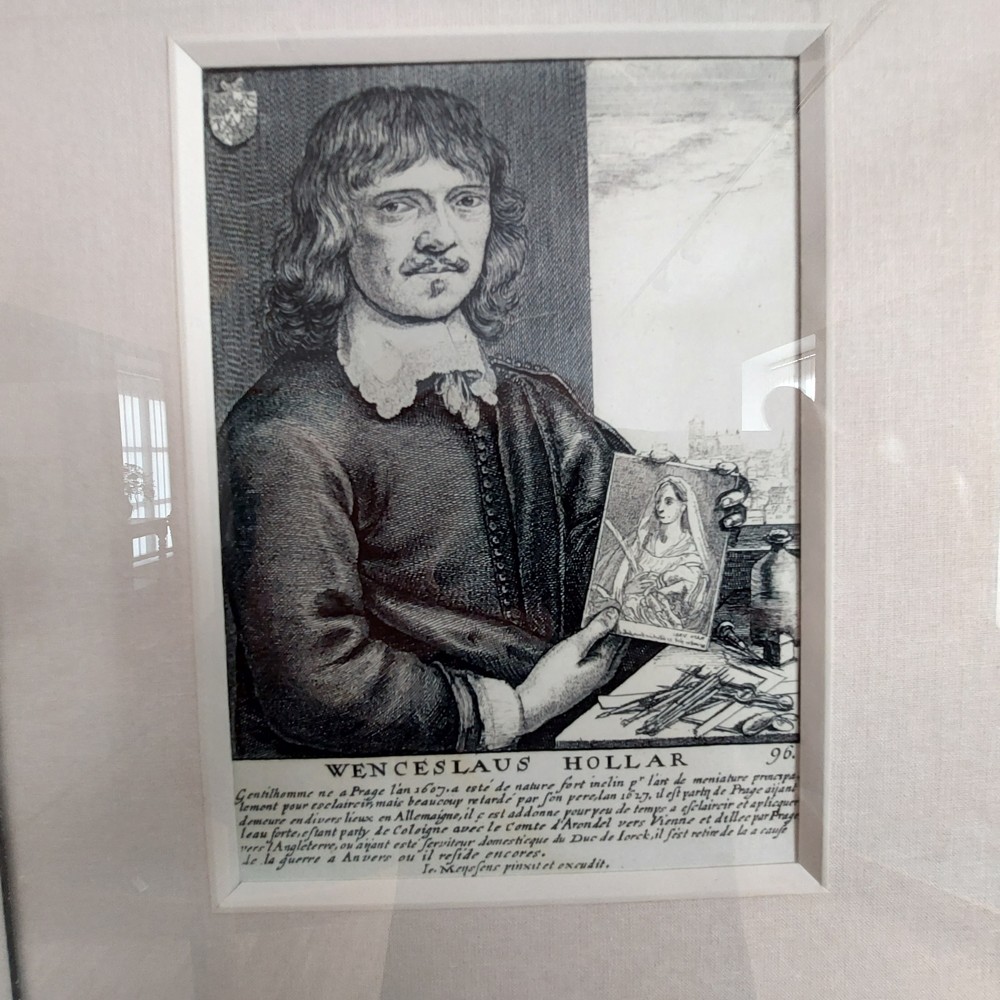 WENCESLAUS HOLLAR 96.
Gentilhomme ne a Prage l'an 1607, a esté de nature fort inclin pr l'art de meniature principa-
lement pour esclaircir, mais beaucoup retardé par son pere, lan 1627, il est party de Prage aijant
demeure en divers lieux en Allemaigne, il ç est addonne pour peu de temps a esclaircir et aplicquer
leau forte, estant party de Coloigne avec le Comte d'Arondel vers Vienne et dillec par Prage
vers l'Angleterre, ou aijant esté serviteur domesticque du Duc de Iorck, il s'est retire de la a cause
de la guerre a Anvers ou il reside encores.
Ie. Meyssens pinxit et excudit.